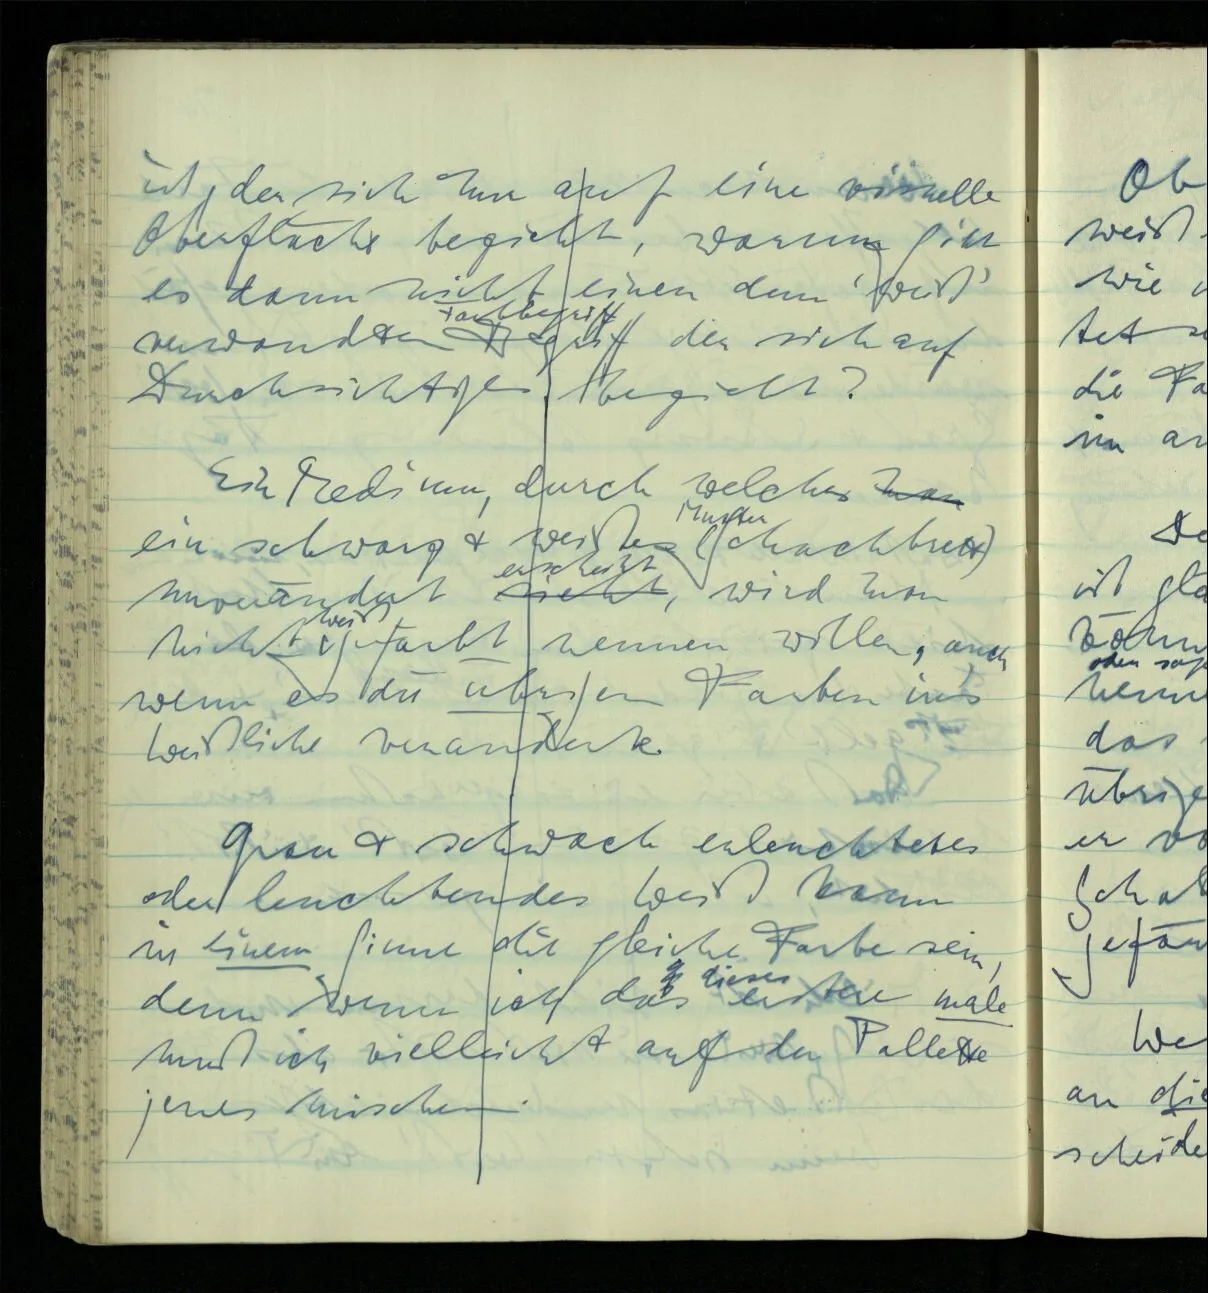 ist, der sich nur auf eine visuelle
Oberfläche bezieht, warum gibt
es dann nicht einen dem 'weiß'
Farbbegriff
verwandten Begriff der sich auf
Durchsichtiges bezieht?
Ein Medium, durch welches man
Muster
ein schwarz & weißes (Schachbrett)
erscheint
unverändert sieht, wird man
weiß
nicht gefärbt nennen wollen, auch
wenn es die übrigen Farben ins
Weißliche veränderte.
Grau & schwach erleuchtetes
oder leuchtendes Weiß kann
in einem Sinne die gleiche Farbe sein,
dieses
denn wenn ich das letztere male
muß ich vielleicht auf der Pallette
jenes mischen.
Ob
weiß
wie
tet
die Fa
im an
ist gla
oder sag
nenne
das
übrige
er vo
Schat
gefär
We
an die
scheide